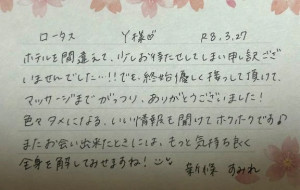 ロータス Y様♂ R8.3.27
ホテルを間違えて、少しお待たせしてしまい申し訳ござ
いませんでした…!!でも、終始優しく接って頂けて、
マッサージまでがっつり、ありがとうございました!
色々タメになる、いい情報を聞けてホクホクです♪
またお会い出来たときには、もっと気持ち良く
全身を解してみせますね!
新保 すみれ